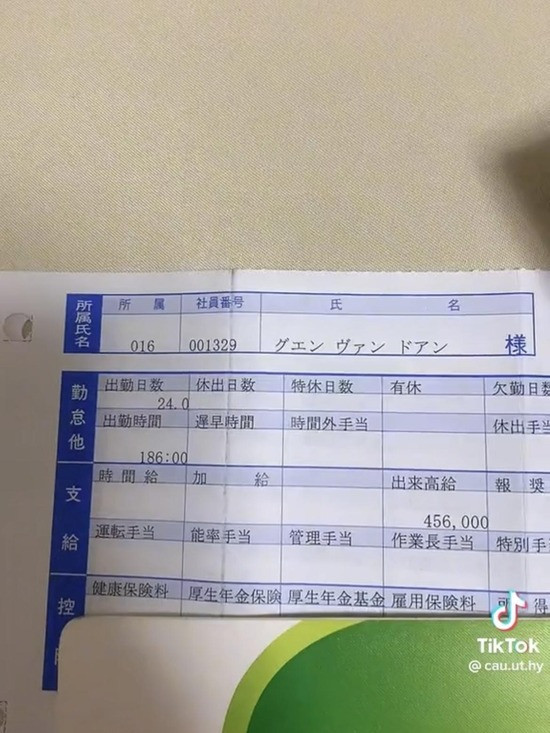 所属氏名
所属 社員番号 氏名
016 001329 グエン ヴァン ドアン 様
勤怠他
出勤日数 休出日数 特休日数 有休 欠勤日数
24.0
出勤時間 遅早時間 時間外手当 休出手当
186:00
支給
時間給 加給 出来高給 報奨
456,000
運転手当 能率手当 管理手当 作業長手当 特別手
控
健康保険料 厚生年金保険 厚生年金基金 雇用保険料 得
TikTok
@cau.ut.hy